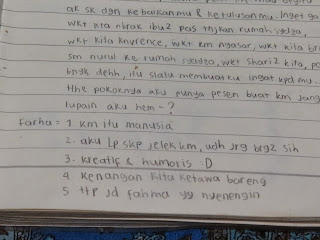 ak sk dgn kebaikanmu & ketulusanmu. Inget ga
wkt kita nbrak ibu2 pas tnjkan rumah syadza,
wkt kita knvrence, wkt km ngasar, wkt kita
sm nurul ke rumah syadza, wkt shari2 kita,
bnyk dehh, itu slalu membuatku ingat kpd mu.
tht pokoknya aku punya pesen buat km jang
lupain aku hem - ?
Farha = 1 km itu manusia
2. aku lp skp jelek km, udh jrg brg2 sih
3. kreatif & humoris :D
4 kenangan kita ketawa bareng
5 ttp jd fahma yg nyenengin